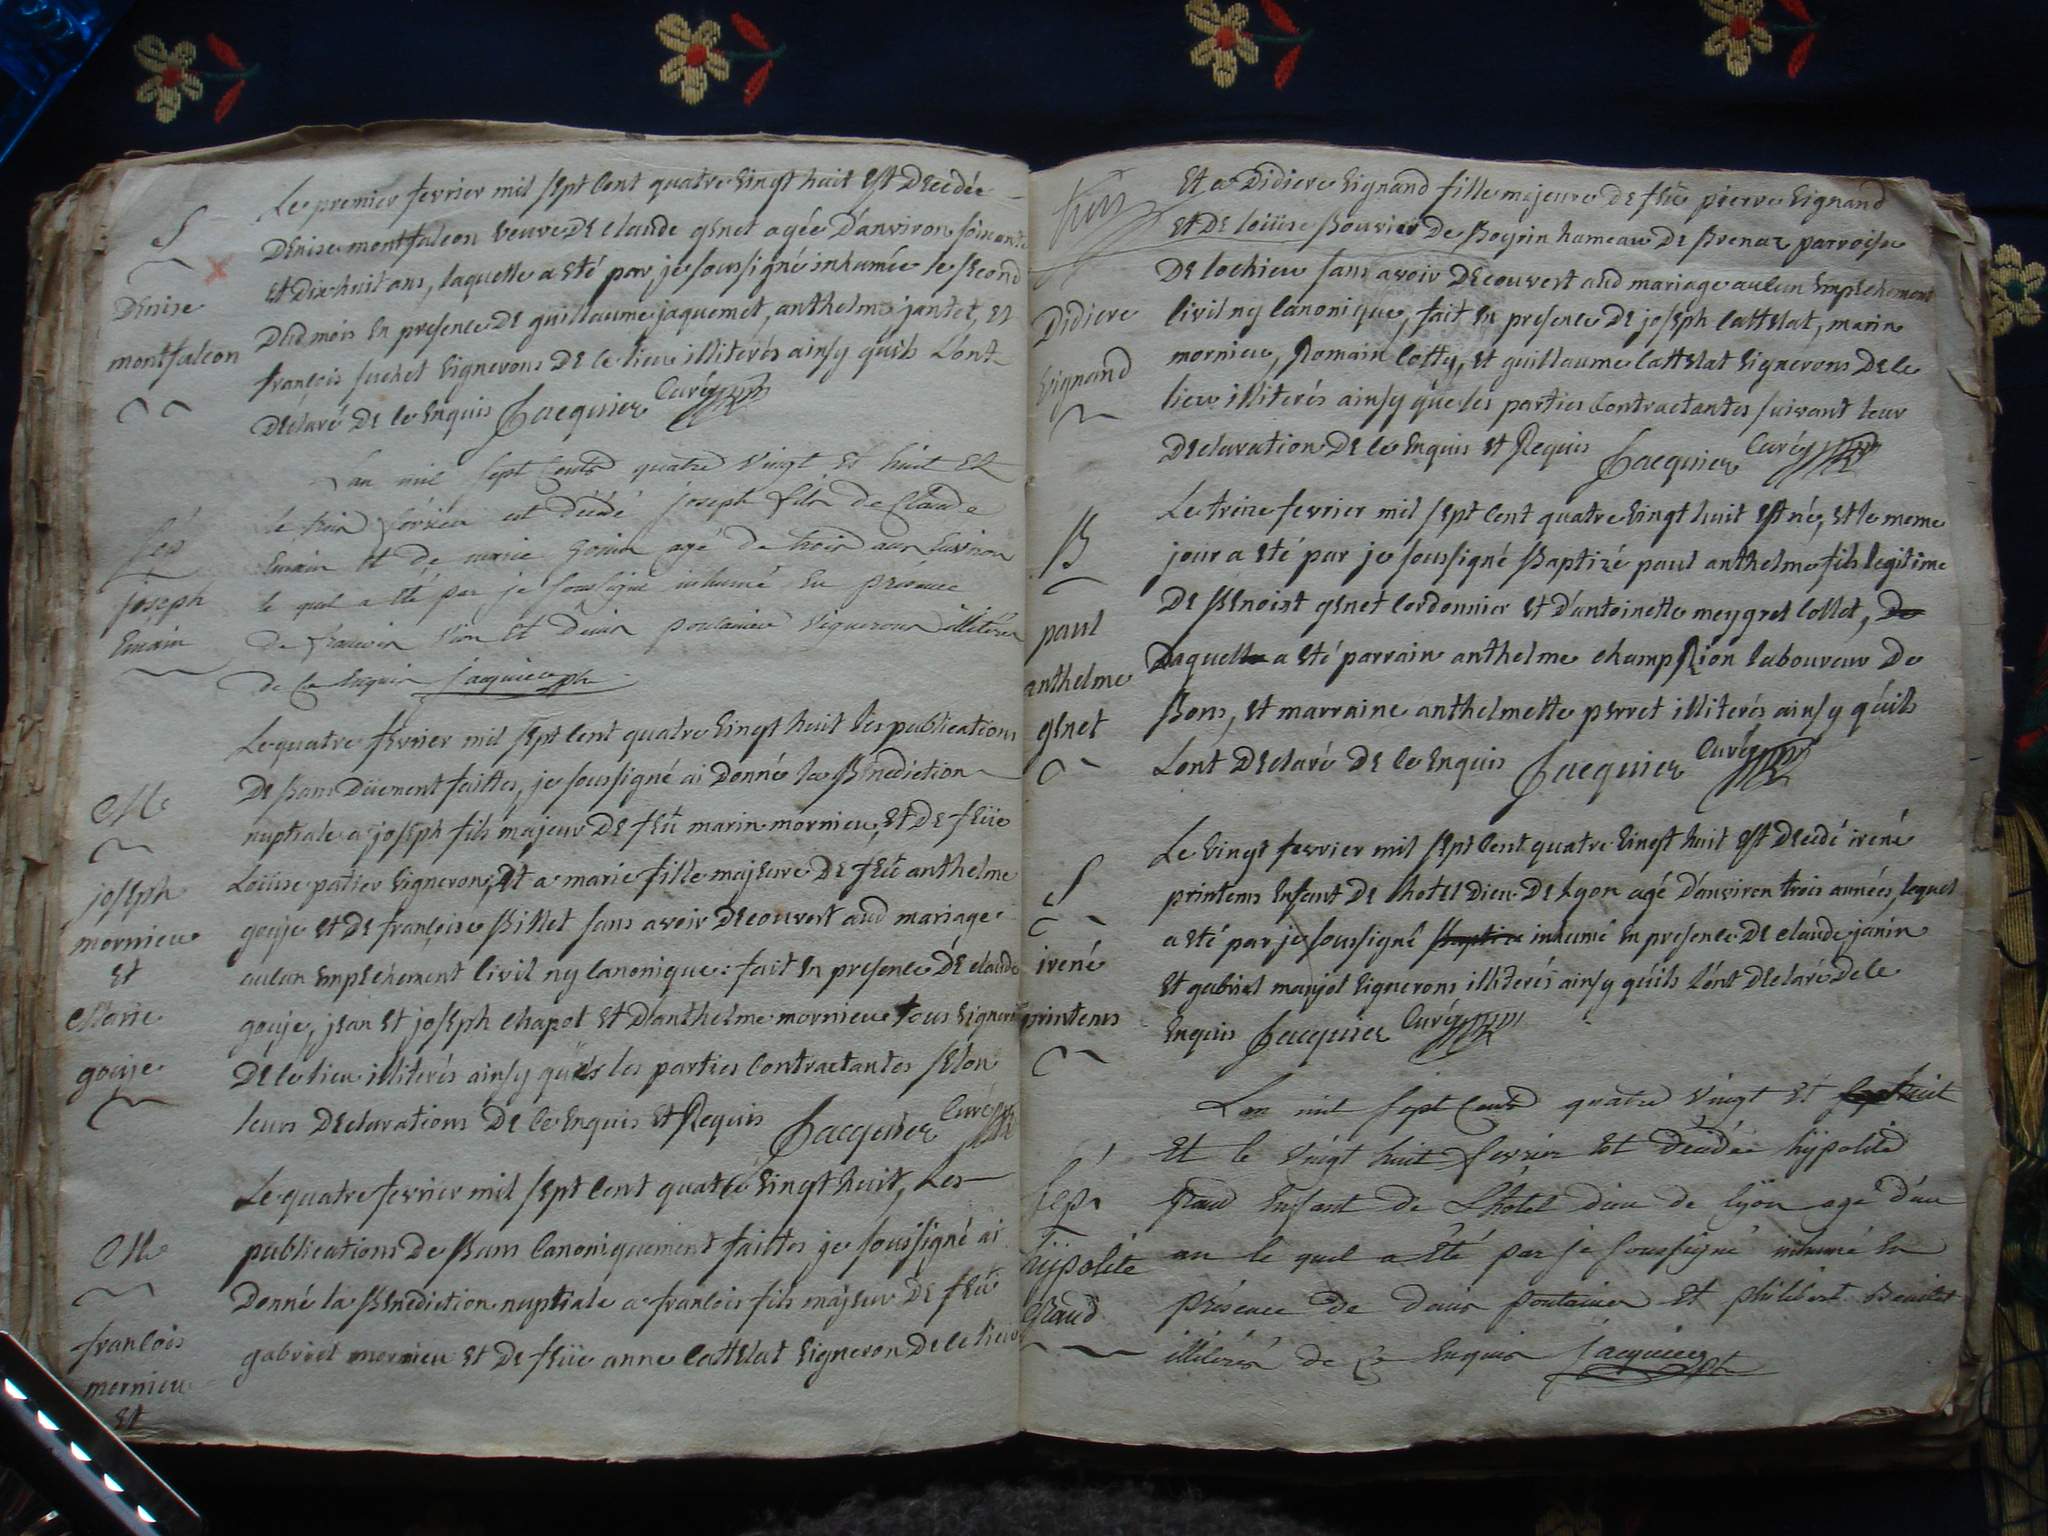 S
Denise
montfalcon
Le premier fevrier mil sept cent quatre vingt huit est decedée
denise montfalcon veuve de claude genet agée d'anviron soixante
et dix huit ans, laquelle a eté par je soussigné inhumée le second
dud mois en presence de guillaume jaquemet, anthelme jantet, et
françois suchet vignerons de ce lieu illiterés ainsy quils l'ont
declaré de ce enquis Jacquier Curé
Sep
joseph
Lan mil sept cents quatre vingt et huit et
le trois fevrier est décédé joseph fils de Claude
et de marie agé de trois ans environ
le quel a eté par je soussigné inhumé en présence
de et denis poulaine vignerons illitérés
de ce enquis jacquier
M
joseph
mornieu
et
Marie
gouje
Le quatre fevrier mil sept cent quatre vingt huit les publications
de bans düement faittes, je soussigné ai donné la benediction
nuptiale a joseph fils majeur de feü marin mornieu, et de feüe
Loüise patier vigneron, et a marie fille majeure de feü anthelme
gouje et de françoise Billet sans avoir decouvert aud mariage
aucun empechement civil ny canonique: fait en presence de claude
gouje, jean et joseph chapot et d'anthelme mornieu tous vignerons
de ce lieu illiterés ainsy que les parties contractantes selon
leurs declarations de ce enquis et Requis Jacquier Curé
M
francois
mornieu
et
Le quatre fevrier mil sept cent quatre vingt huit, Les
publications de Bans canoniquement faittes je soussigné ai
donné la Benediction nuptiale a francois fils majeur de feü
gabriel mornieu et de feüe anne Cattelat vigneron de ce lieu
Didiere
vignand
et a Didiere vignand fille majeure de feü pierre vignand
et de loüise Bouvier de Boyrin hameau de Brenaz parroisse
de lochieu sans avoir decouvert aud mariage aucun empechement
civil ny canonique, fait en presence de joseph Cattelat, marin
mornieu, Romain Cotty, et guillaume Cattelat vignerons de ce
lieu illiterés ainsy que les parties contractantes suivant leur
declaration de ce enquis et Requis Jacquier Curé
B
paul
anthelme
genet
Le treize fevrier mil sept cent quatre vingt huit est né, et le meme
jour a eté par je soussigné Baptizé paul anthelme fils legitime
de Benoist genet cordonnier et d'antoinette meygret collet, de
Laquelle a eté parrain anthelme champRion laboureur de
Bons, et marraine anthelmette perret illiterés ainsy qu'ils
L'ont declaré de ce enquis Jacquier Curé
S
irené
printems
Le vingt fevrier mil sept cent quatre vingt huit est decedé irené
printems enfant de l'hotel dieu de Lyon agé d'anviron trois années, lequel
a eté par je soussigné Baptizé inhumé en presence de claude janin
et gabriel manjot vignerons illiterés ainsy qu'ils l'ont declaré de ce
enquis Jacquier Curé
Sep
hÿpolite
Lan mil sept cents quatre vingt et sept huit
et le vingt huit fevrier est décédée hÿpolite
enfant de L'hotel dieu de lÿon agé d'un
an le quel a eté par je soussigné inhumé en
présence de denis poulaine et philibert
illiterés de ce enquis jacquier